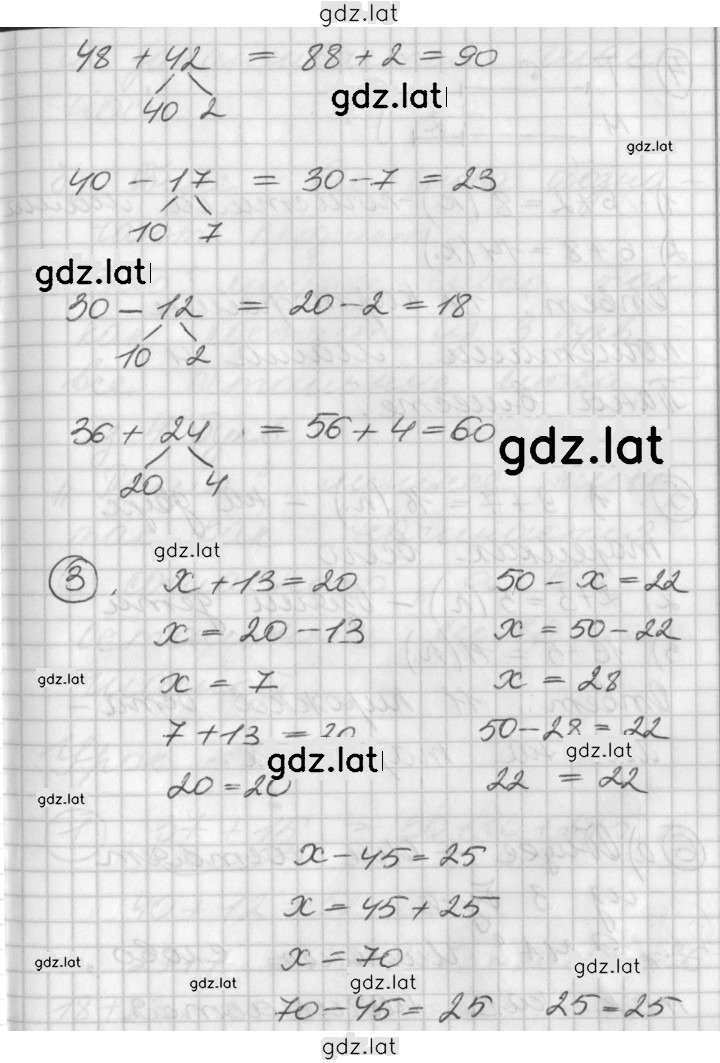 gdz.lat
48 + 42 = 88 + 2 = 90
40 2
gdz.lat
gdz.lat
40 - 17 = 30 - 7 = 23
10 7
gdz.lat
30 - 12 = 20 - 2 = 18
10 2
36 + 24 = 56 + 4 = 60
20 4
gdz.lat
gdz.lat
3. x + 13 = 20 50 - x = 22
x = 20 - 13 x = 50 - 22
gdz.lat
x = 7 x = 28
7 + 13 = 20 50 - 28 = 22
gdz.lat
gdz.lat
20 = 20 22 = 22
gdz.lat
x - 45 = 25
x = 45 + 25
x = 70
gdz.lat
gdz.lat
gdz.lat
gdz.lat
70 - 45 = 25 25 = 25
gdz.lat